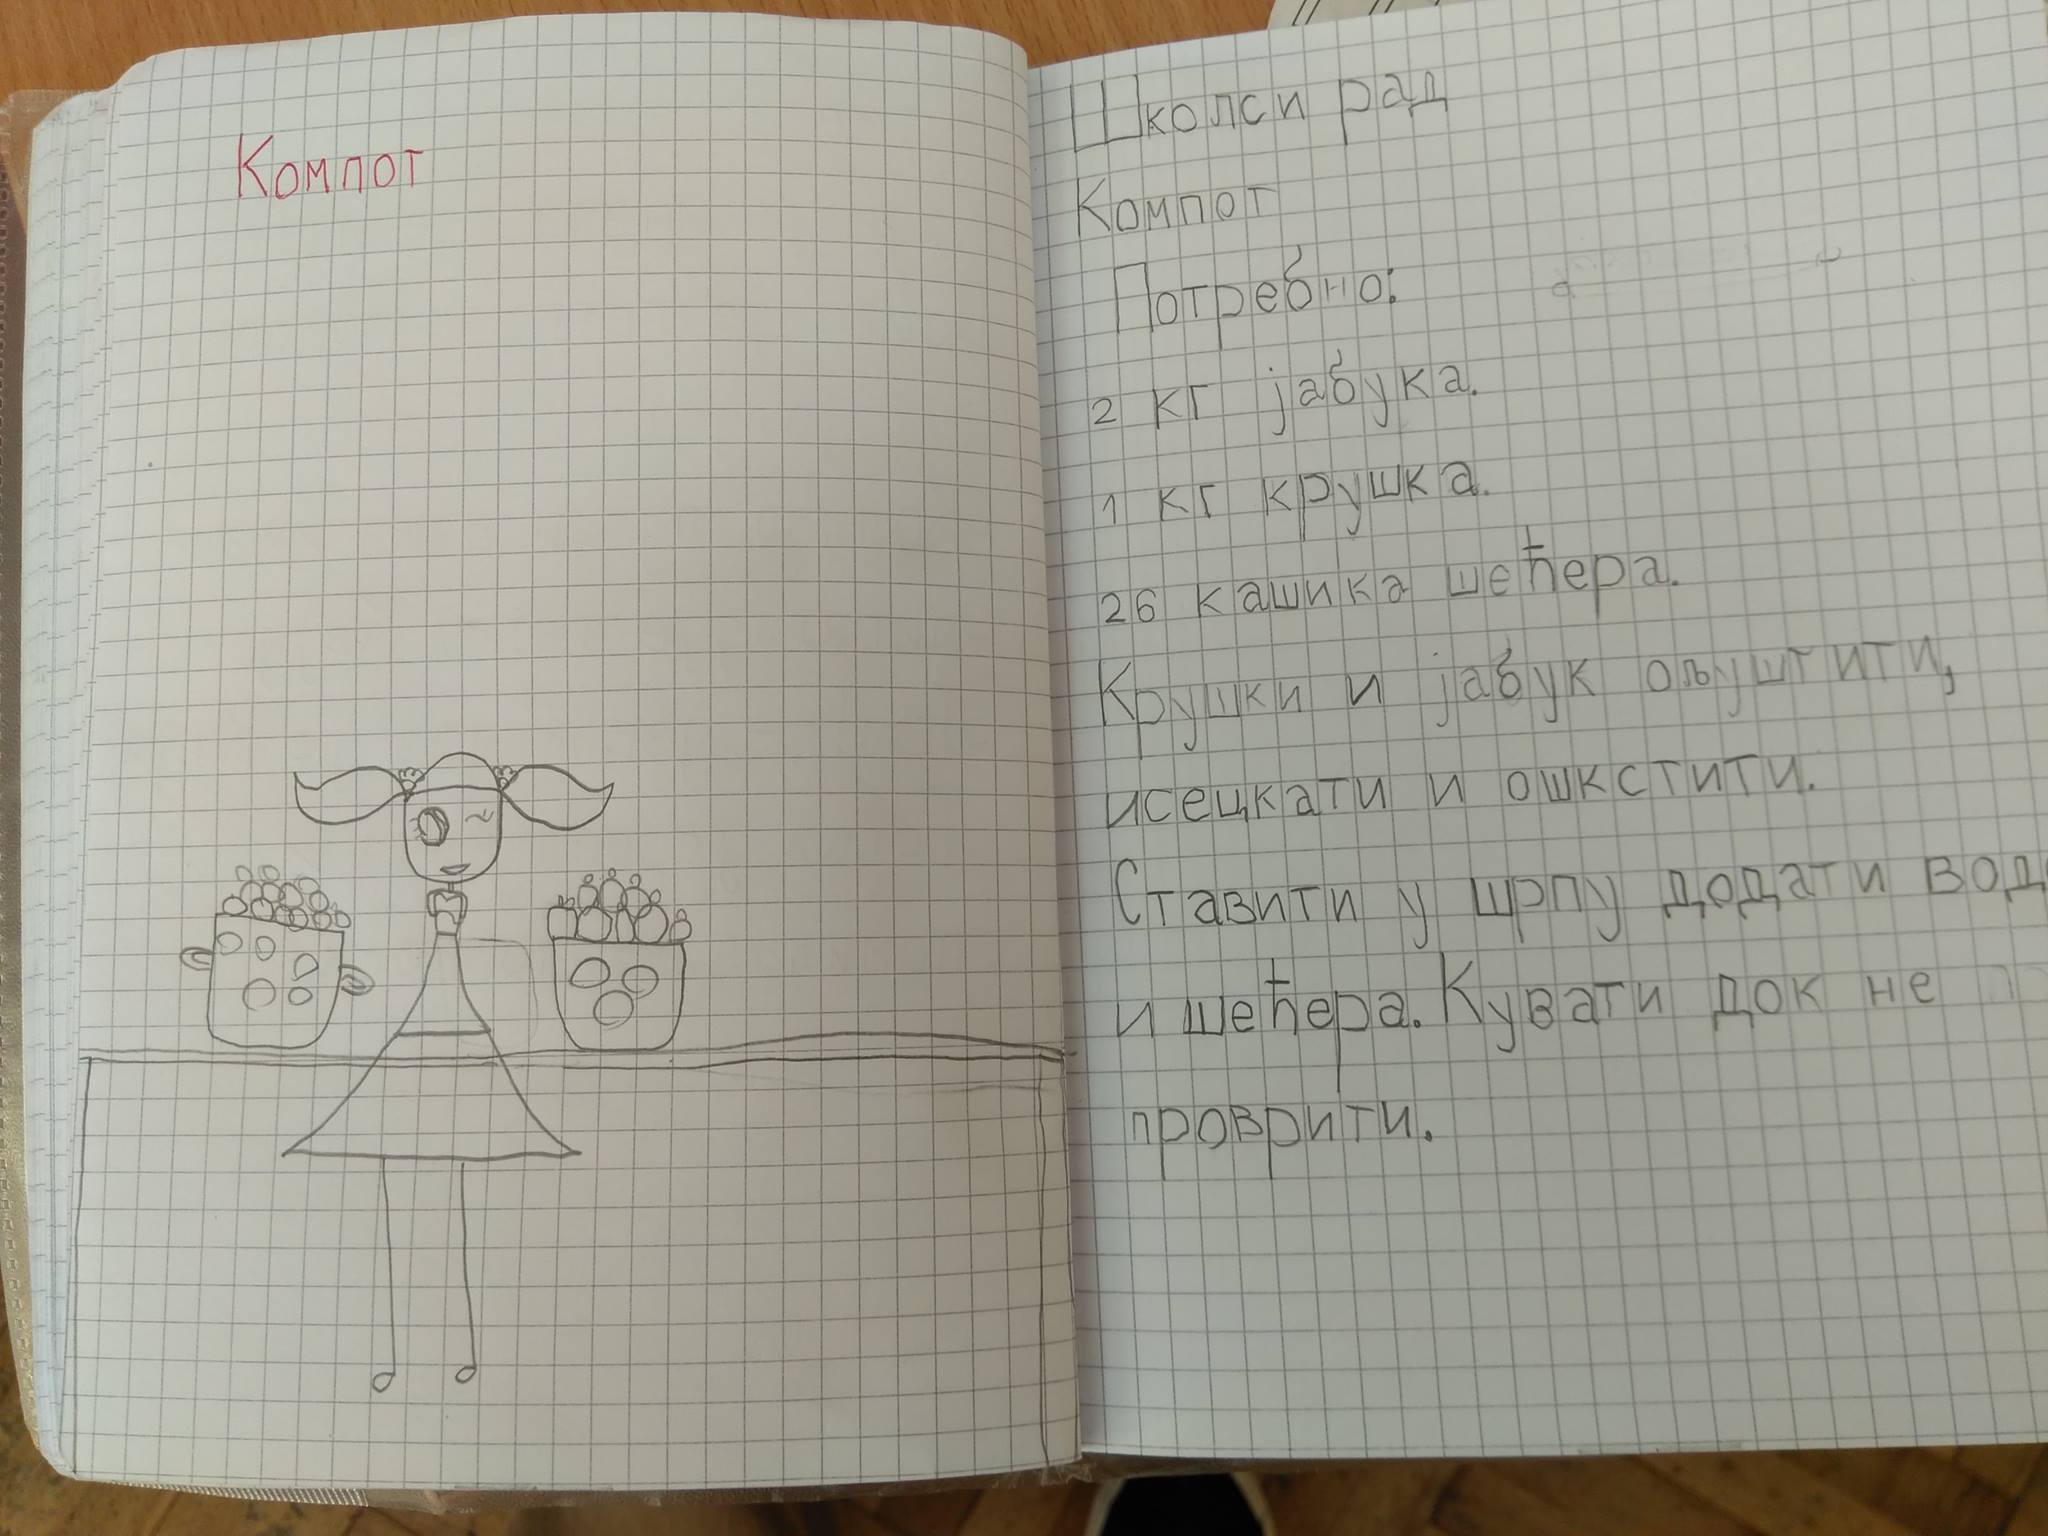 Компот
Школси рад
Компот
Потребно:
2 кг јабука.
1 кг крушка.
26 кашика шећера.
Крушки и јабук ољуштити,
исецкати и ошкстити.
Ставити у шрпу додати
и шећера. Кувати док не
проврити.